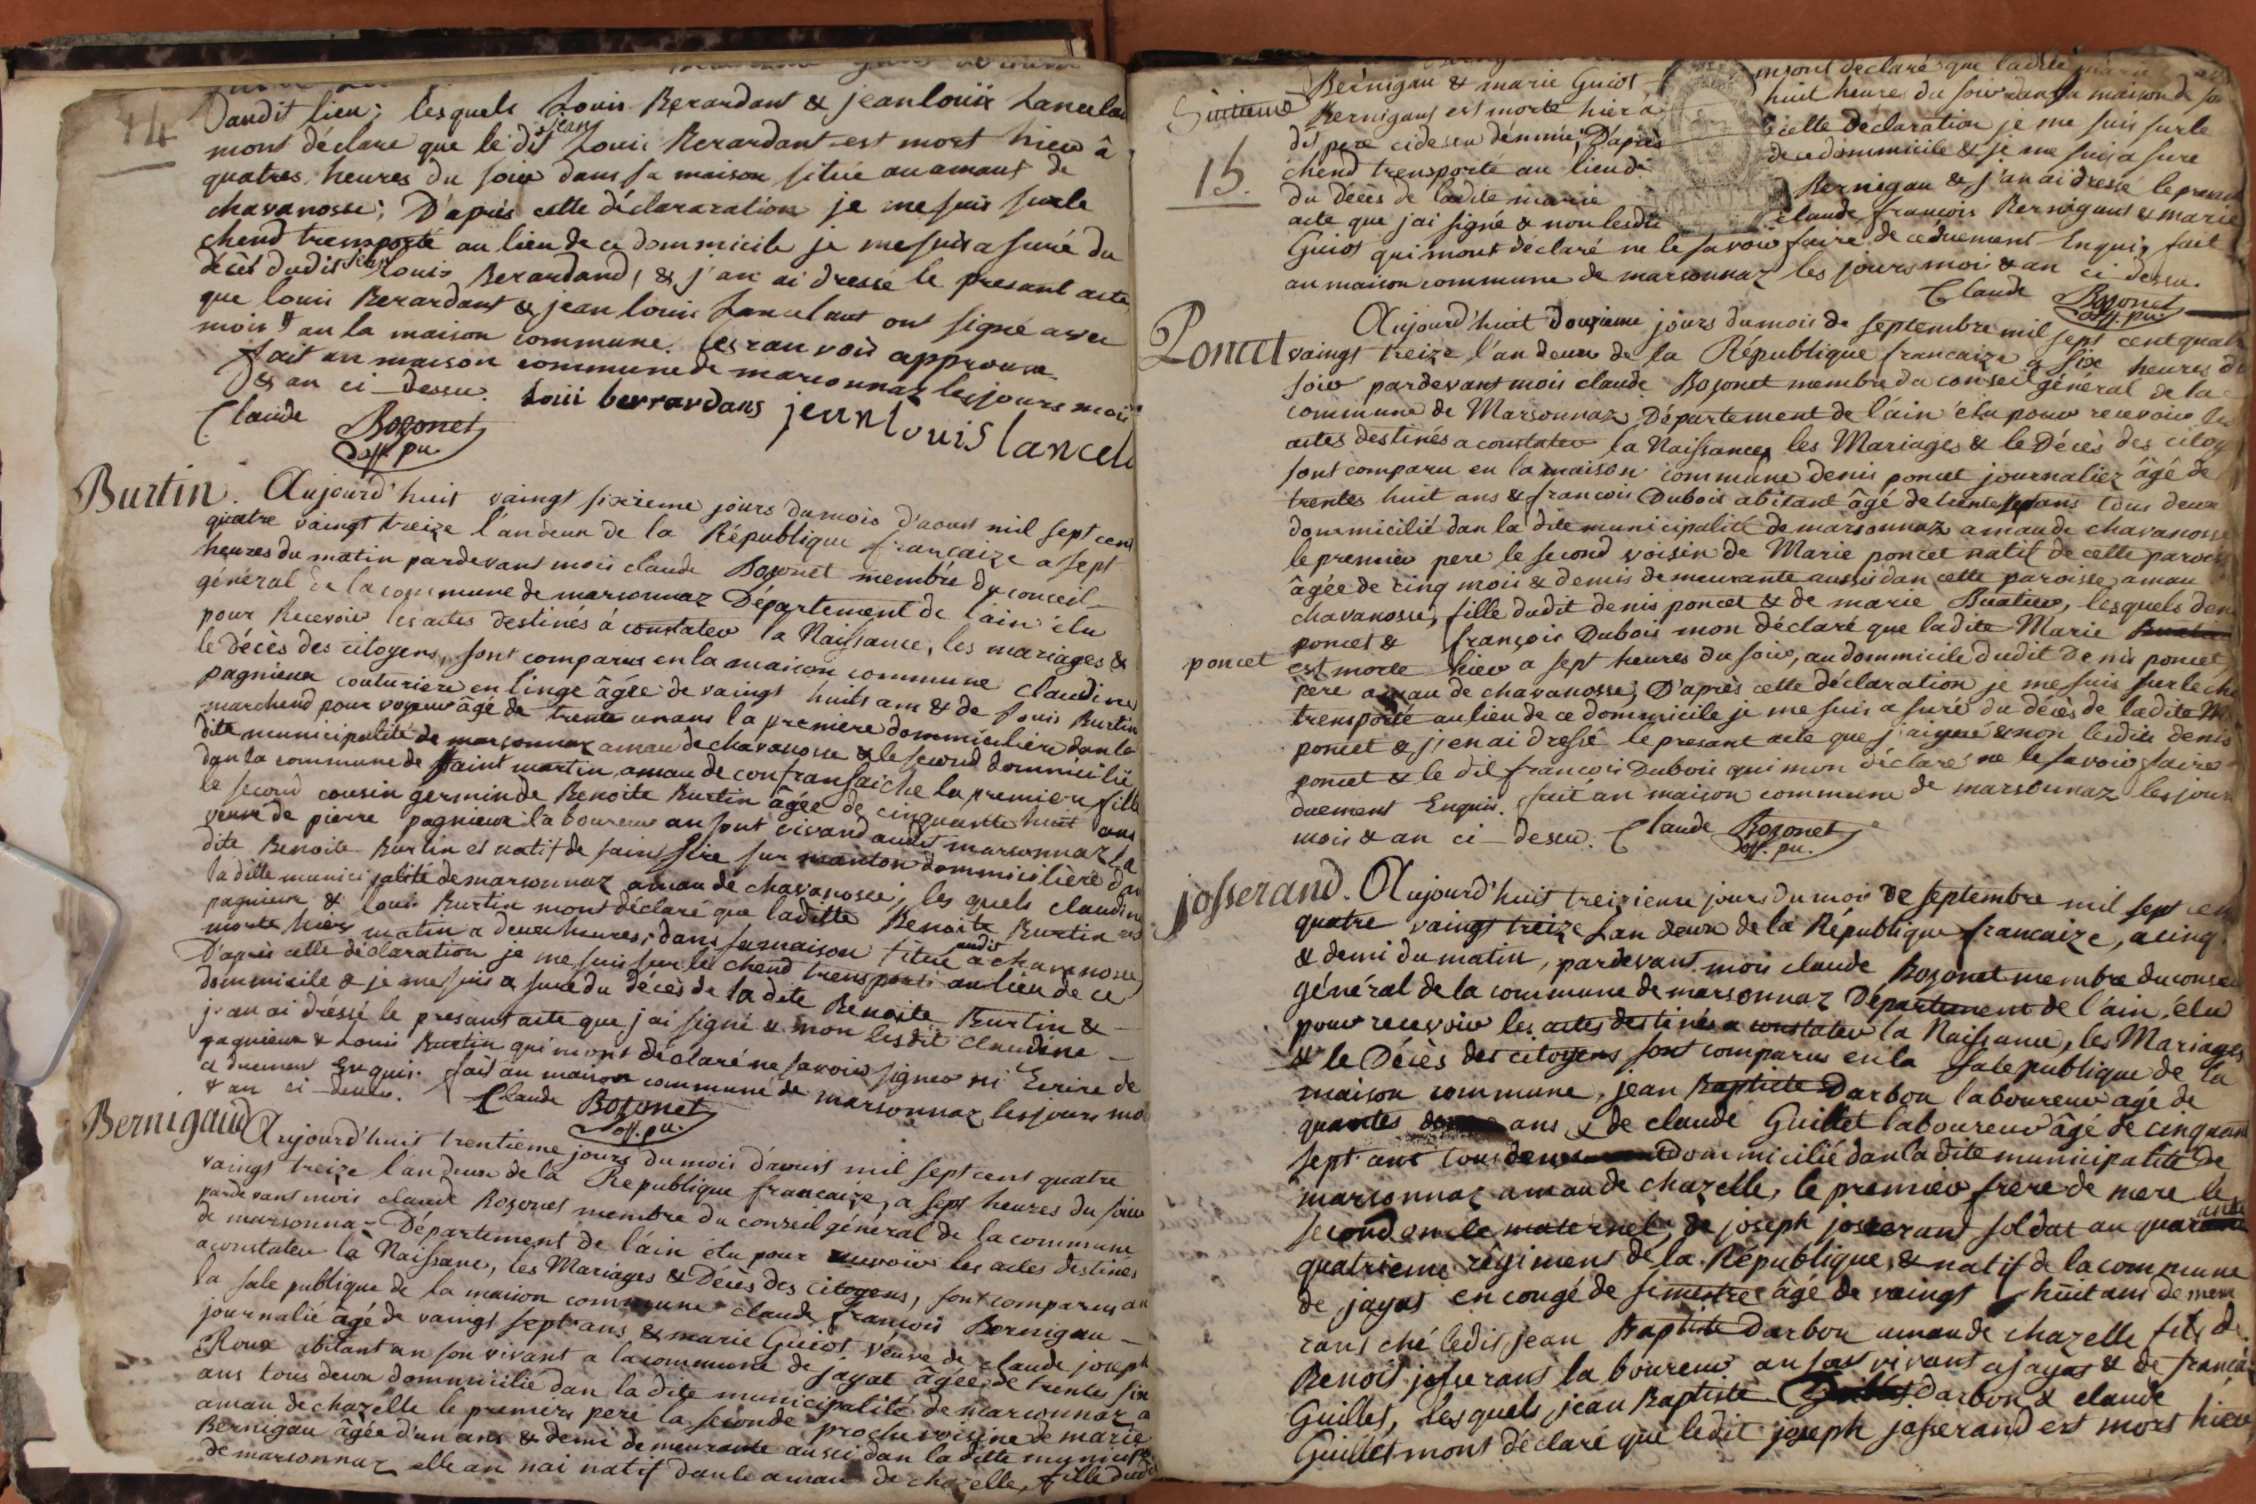 14
Dandit lieu; lesquels Louis Berardant & jean louis Lancela
mont déclare que le dit jean Louis Berardant est mort hier â
quatres heures du soir dans sa maison situé au amaut de
chavanosse; D'apriès cette déclararation je me suis surle
chend tremsporté au lieu de ce dommicile je me suis a suré du
décès dudit jean Louis Berardand, & j'an ai dressé le presant acte
que louis Berardant & jean louis Lancelaut ont signé avec
mois au la maison commune. les ran vois approuve
fait an maison commune de marsonnaz les jours moi
& an ci-desu. Loui berrardans jean Louis lancela
Claude Bozonet
off. pu.
Burtin. Aujourd'huit vaingt sixieme jours du mois d'aoust mil sept cent
quatre vaingt treize l'an deux de la République francaize a sept
heures du matin pardevant mois claude Bozonet membre du conseil
général de la commune de marsonnaz Département de l'ain élu
pour Recevoir les actes destinés à constater la Naissance, les mariages &
le décès des citoyens, sont comparus en la maison commune claudine
pagnieux couturiere en linge âgée de vaingt huits ans & de Louis Burtin
marchend pour voyeur âgé de trente un ans la premiere dommiciliére dan la
dite municipalité de marsonnaz amau de chavanosse & le second dommicilié
dan la commune de saint martin amau de confransaiche la premier fille
le second cousin germin de Benoite Burtin âgée de cinquante huit ans
veuve de pierre pagnieux laboureur an sont vivand audit marsonnaz la
dite Benoite Burtin et natif de saint sire sur manton dommiciliére dan
la ditte municipalité de marsonnaz amau de chavanosse; les quels claudine
pagnieux & louis Burtin mont déclaré que laditte Benoite Burtin est
morte hier matin a deux heures; dans sa maison situé audit a chavanosse
D'après cette déclaration je me suis sur le chend tremsporté au lieu de ce
dommicile & je me suis a suré du décès de la dite Benoite Burtin &
j'an ai dréssé le presant acte que j'ai signé & mon les dit Claudine
pagnieux & Louis Burtin qui m'ont déclaré ne savoir signer ni Ecrire de
ce duement Enquis. fait an maison commune de marsonnaz les jours moi
& an ci-desu. Claude Bozonet
off. pu.
Bernigaud Aujourd'huit trentieme jours du mois d'aoust mil sept cent quatre
vaingt treize l'an deux de la République francaize, a sept heures du soir
pardevant mois claude Bozonet membre du conseil général de la commune
de marsonna- Département de l'ain élu pour recevoir les actes destinés
a constater la Naissance, les Mariages & Décès des citoyens, sont comparus an
la sale publique de la maison commune claude francois Bernigau
journalié âgé de vaingt sept ans & marie Guiot véuve de claude joseph
Roux abitant an son vivant a la commune de jayat âgée de trentes six
ans tous deux dommicilié dan la dite municipalité de marsonnaz a
amau de chazelle le premiers pere la seconde proche voisine de marie
Bernigau âgée d'un ans & demi demeurante aussi dan la ditte municipa
de marsonnaz elle an nai natif dan le amau de chazelle, fille dudi
15.
Bernigau & marie Guiot m'ont declaré que ladite marie
Bernigaus est morte hier a huit heures du soir dans la maison de son
dit pere cidesu démmé, D'apriès cette declaration je me suis surle
chend tremporté au lieu de ce dommicile & je me suis a sure
du décès de ladite marie Bernigau & j'an ai dressé le presen
acte que j'ai signé & non lesdit claude francois Bernigaus & marie
Guiot qui m'ont déclaré ne le savoir faire de ce duement Enquis fait
an maison commune de marsonnaz les jours mois & an ci desu.
Claude Bozonet
off. pu.
Poncet Aujourd'huit douzieme jours du mois de septembre mil sept cent quatre
vaingt treize l'an deux de la République francaize a six heures du
soir pardevant mois claude Bozonet membre du conseil général de la
commune de Marsonnaz Département de l'ain élu pour recevoir les
actes destinés a constater la Naissances les Mariages & le Décès des citoy
sont comparu en la maison commune denis poncet journaliez âgé de
trentes huit ans & francois Dubois abitant âgé de trente sept ans tous deux
dommicilié dan la dite municipalité de marsonnaz amau de chavanosse
le premier pere le second voisin de Marie poncet natif de cette paroiss
âgée de cinq mois & demis demeurante aussi dan cette paroisse amau
chavanosse, fille dudit denis poncet & de marie Buatier, lesquels deni
poncet & françois Dubois mon déclaré que ladite Marie
poncet est morte hier a sept heures du soir, au dommicile dudit Denis poncet
pere amau de chavanosse; D'après cette déclaration je me suis sur le che
tremsporté au lieu de ce dommicile je me suis a suré du décès de ladite M
poncet & j'en ai dressé le presant acte que j'ai signé & non lesdits denis
poncet & le dit francois Dubois qui mon déclaré ne le savoir faire
duement Enquis. fait an maison commune de marsonnaz les jour
mois & an ci-desu. Claude Bozonet
off. pu.
josserand. Aujourd'huit treizieme jours du moi de septembre mil sept cen
quatre vaingt treize Lan deux de la République francaize, a cinq
& demi du matin, pardevant mois claude Bozonet membre du conseil
général de la commune de marsonnaz Département de l'ain, élu
pour recevoir les actes destinés a constater la Naissance, les Mariages
& le Décès des citoyens sont comparus en la sale publique de la
maison commune, jean Baptiste Darbon laboureur âgé de
quantes ans & de claude Guillet laboureur âgé de cinquant
sept ans tous deux dommicilié dan la dite municipalité de
marsonnaz amau de chazelle, le premier frere de mere le
second oncle maternel, de joseph josserant soldat au quarante
quatrieme régiment de la République & natif de la commune
de jayat en congé de simestre âgé de vaingt huit ans demeu
rant ché ledit jean Baptiste Darbon amau de chazelle fils de
Benoit josserans laboureur an son vivant a jayat & de francoi
Guillet, lesquels jean Baptiste Darbon & claude
Guillet mont déclaré que ledit joseph josserand est mort hier